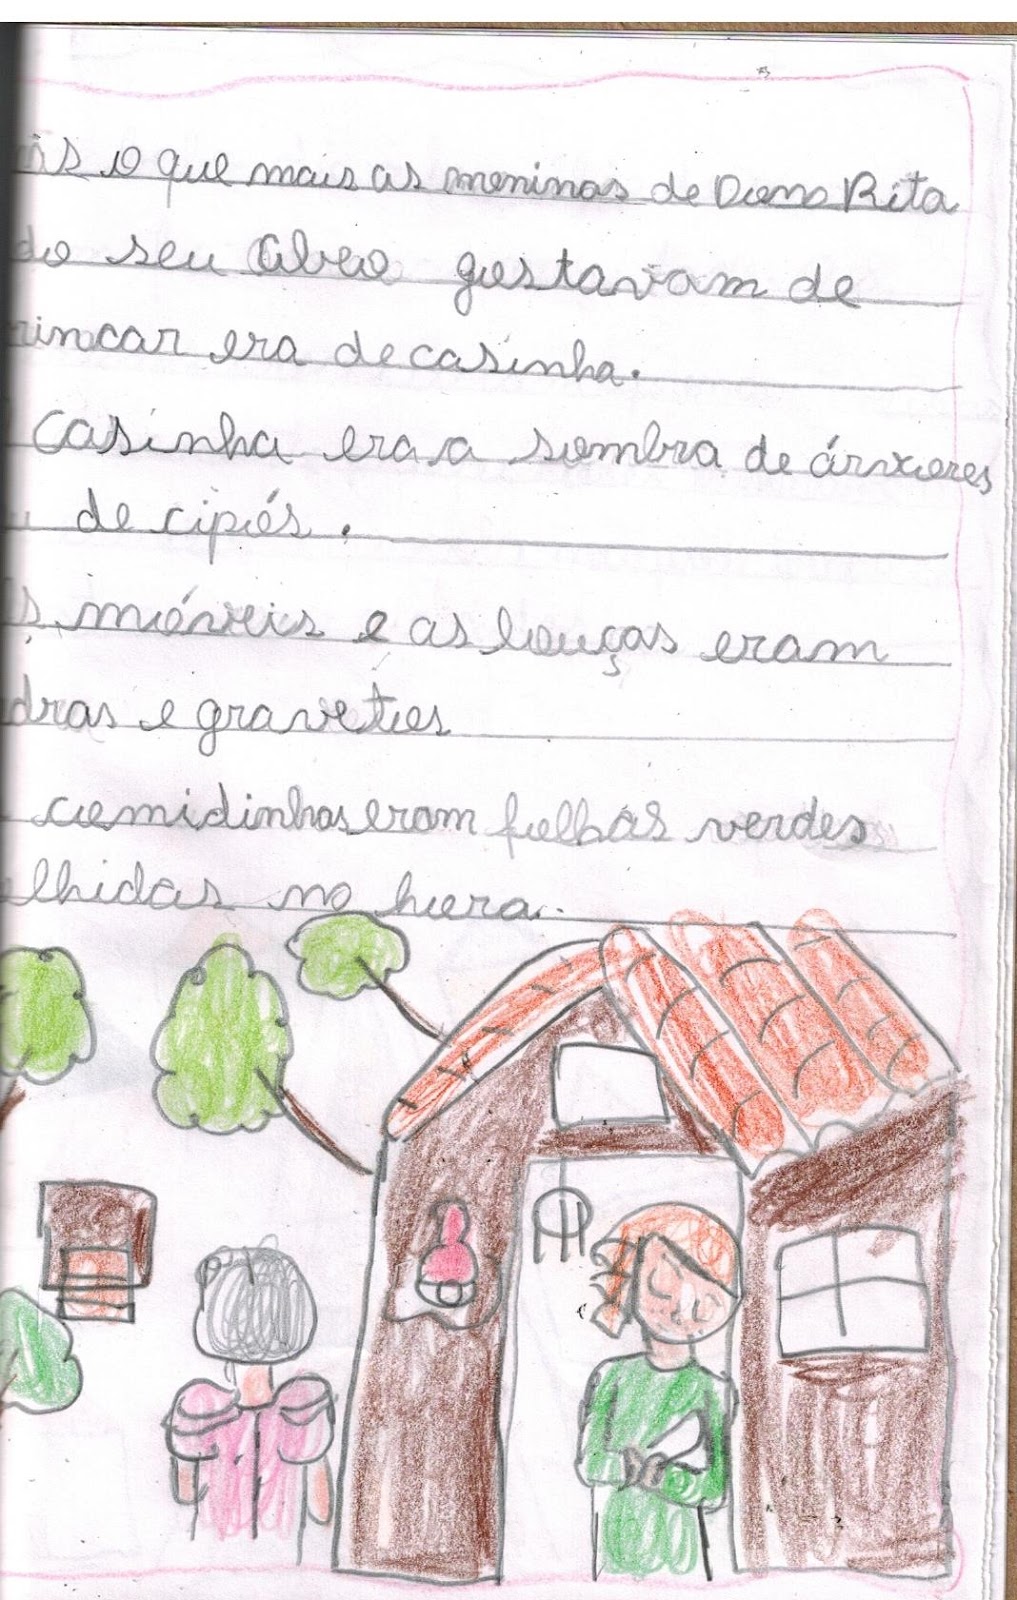 is o que mais as meninas de Dona Rita
do seu gostavam de
rincar era de casinha.
casinha era a sombra de árvores
de cipós.
s móveis e as louças eram
dras e gravetos
comidinhas eram folhas verdes
lhidas na hora.